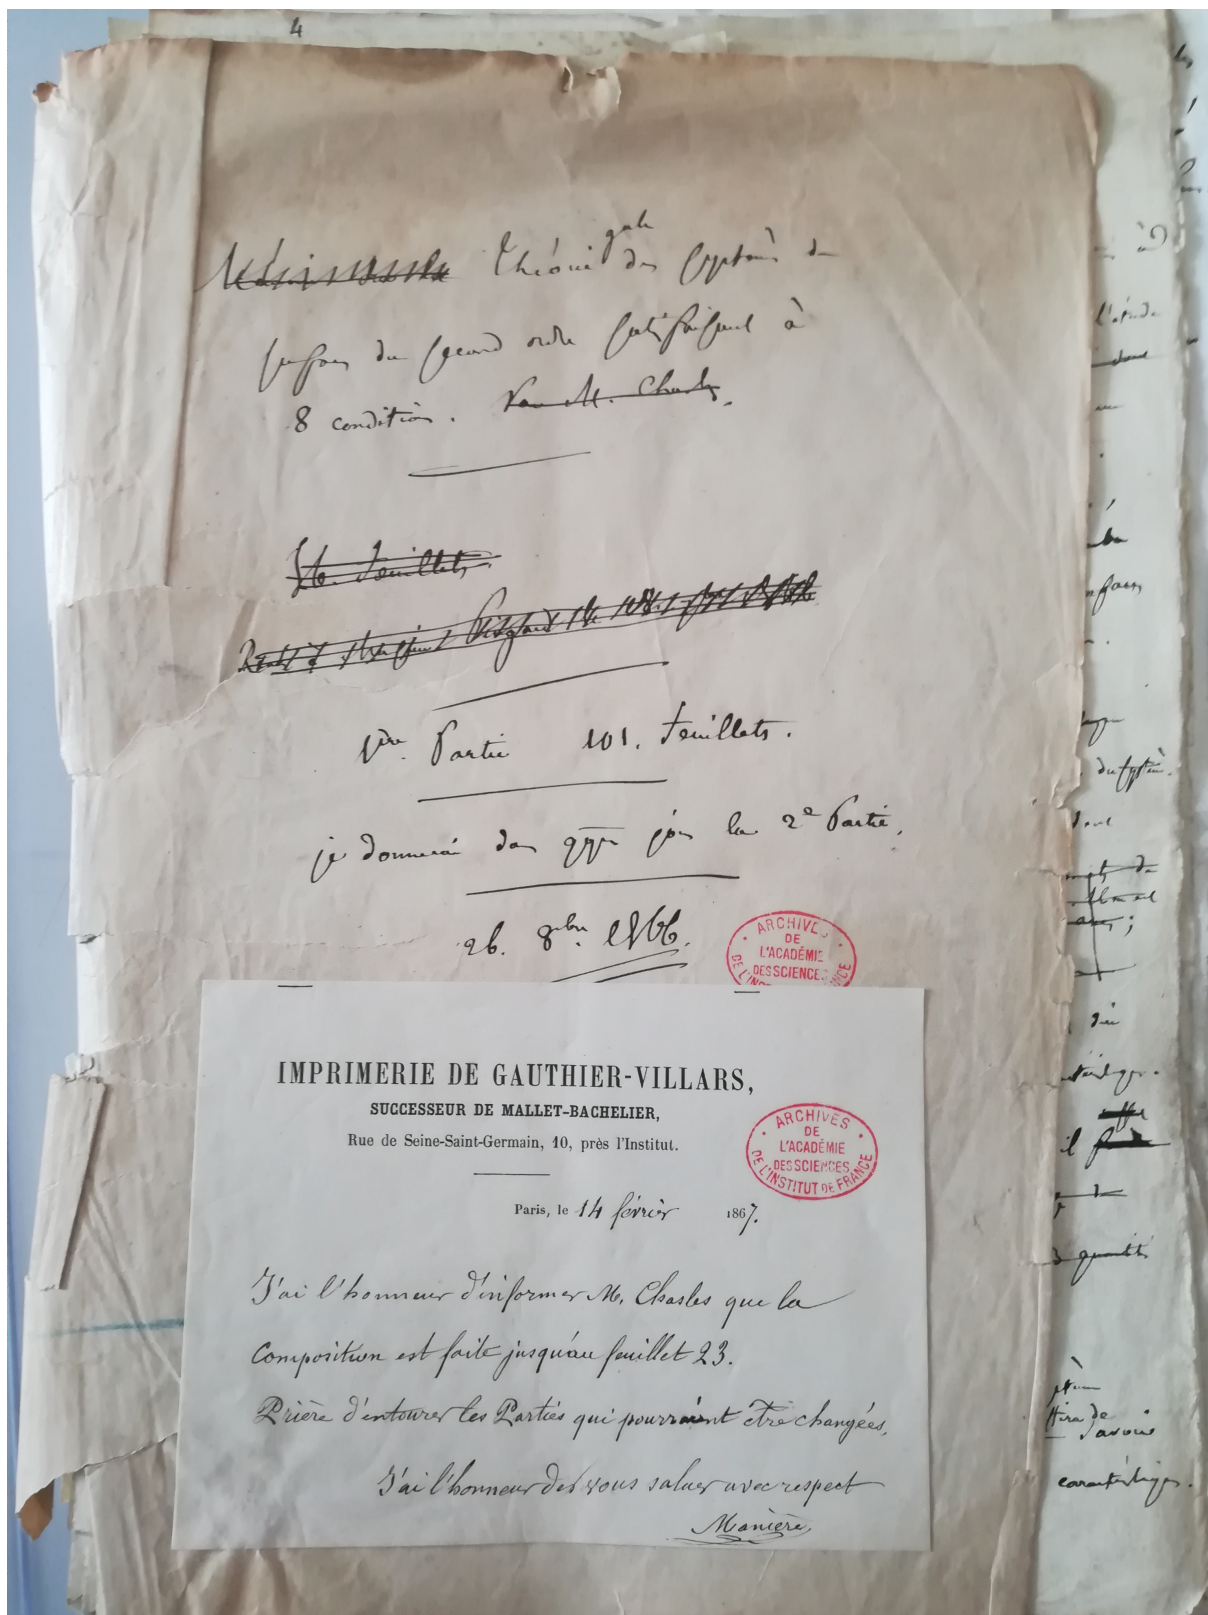 4
Théorie gale des systèmes de
surfaces du second ordre satisfaisant à
8 conditions. Par M. Chasles.
26. Feuillets.
1ère Partie 101. Feuillets.
je donnerai dans qques jours la 2e Partie.
26. 8bre 1866.
ARCHIVES
DE
L'ACADÉMIE
DES SCIENCES
DE L'INSTITUT DE FRANCE
IMPRIMERIE DE GAUTHIER-VILLARS,
SUCCESSEUR DE MALLET-BACHELIER,
Rue de Seine-Saint-Germain, 10, près l'Institut.
ARCHIVES
DE
L'ACADÉMIE
DES SCIENCES
DE L'INSTITUT DE FRANCE
Paris, le 14 février 1867.
J'ai l'honneur d'informer M. Chasles que la
Composition est faite jusqu'au feuillet 23.
Prière d'entourer les Parties qui pourraient être changées.
J'ai l'honneur de vous saluer avec respect
Manière
à
l'étude
dont
du système.
dont
il
3 quantités
Savoie
caractéristiques.